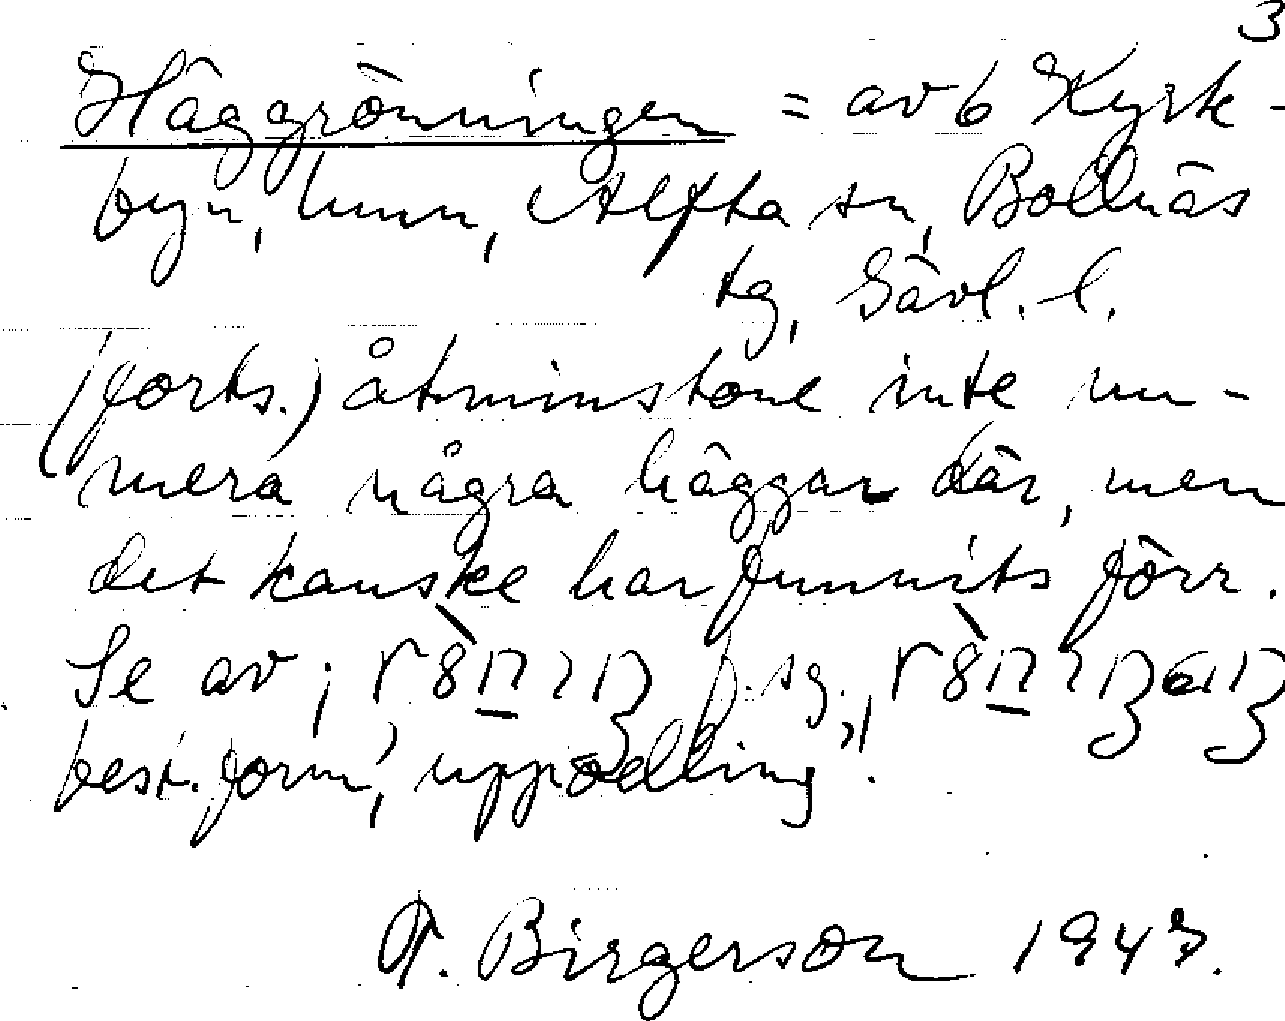 3
Häggröningen = av 6 Kyrk-
byn, hmn, Alfta sn, Bollnäs
tg, Gävl. l.
(forts.) åtminstone inte nu-
mera några häggar där, men
det kanske har funnits förr.
Se av; f. sg.,
best. form, 'uppodling'.
T. Birgerson 1943.